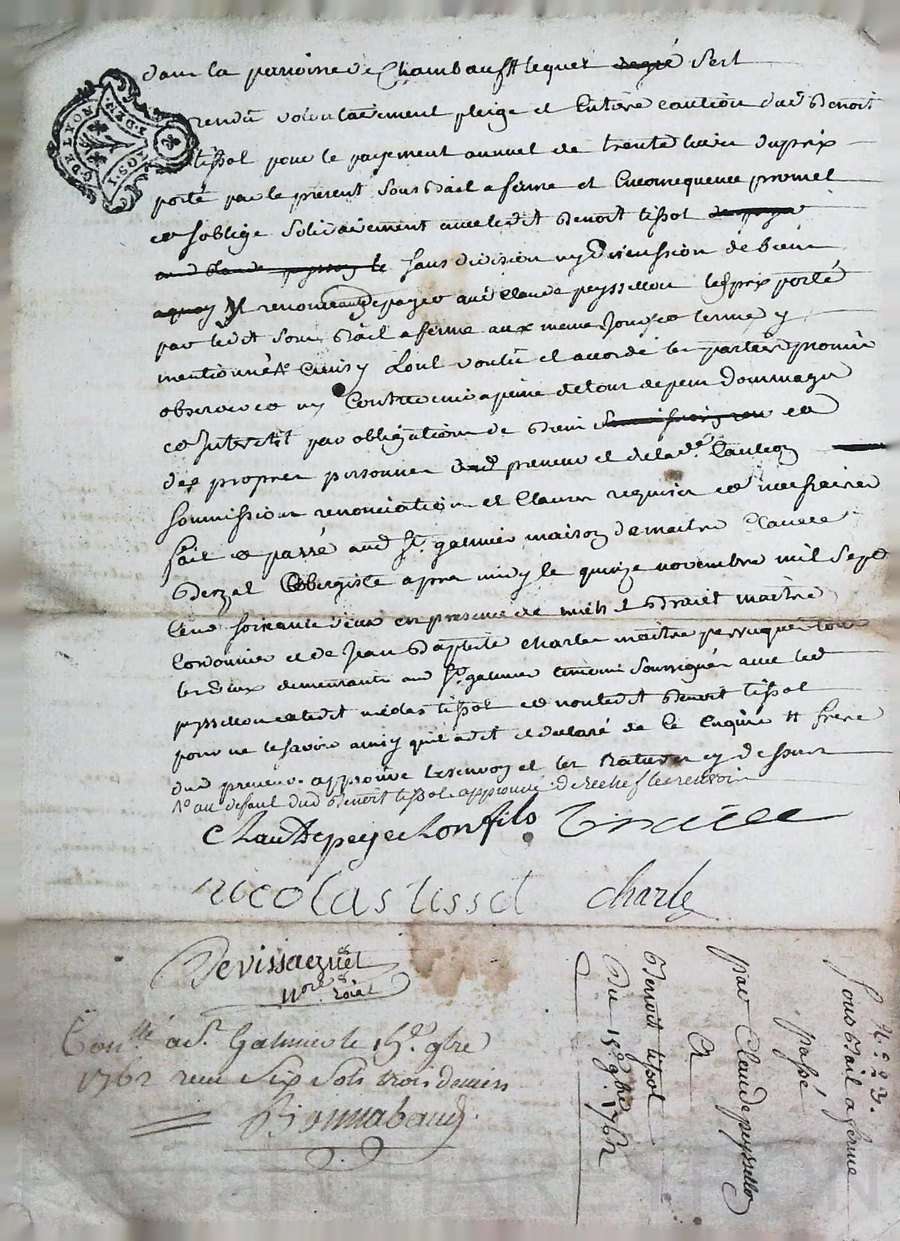 dans la paroisse de Chambauft lequel degré s'est
rendu volontairement pleige et Entière caution dud Benoit
tissot pour le payement annuel de trente livres du prix
porté par le présent Sous Bail a ferme et En conséquence promet
et s'oblige Solidairement avec ledit Benoit tissot
sans division ny Discussion de biens
a quoy Il renonce de payer aud Claude peyssellon le prix porté
par ledit Sous Bail a ferme aux meme Jour et terme y
mentionné Ainsy L'ont voulu et accordé les parties promis
observer et ny Contrevenir a peine de tous depens Dommages
et Interest par obligation de Biens et
des propres personnes dud preneur et de lade Caution
Soumissions renonciation et Clauses requises et necessaires
fait et passé aud St. galmier maison de maitre Claude
Aubergiste apres midy le quinze novembre mil Sept
Cens soixante deux en presence de michel maitre
Cordonnier et de Jean Baptiste Charle maitre perruquier tous
les deux demeurants aud St. galmier temoins Soussignés avec led
peyssellon et ledit nicolas tissot et non ledit Benoit tissot
pour ne le savoir ainsy qu'il a dit et declaré de ce Enquis frere
dud preneur approuvé le renvoy et les Ratures cy dessus
au defaut dud Benoit tissot approuvé derechef le renvoi
Claude peysselon fils
nicolas tissot charle
Devissaguet
Nore Roial
Conllé a St. Galmier le 15e 9bre
1762 reçu Six Sols trois deniers
Bonnabaud
N.º 23.
Sous Bail a ferme
passé
par Claude peyssellon
A
Benoit tissot
Du 15e 9bre 1762
G.DE LYON